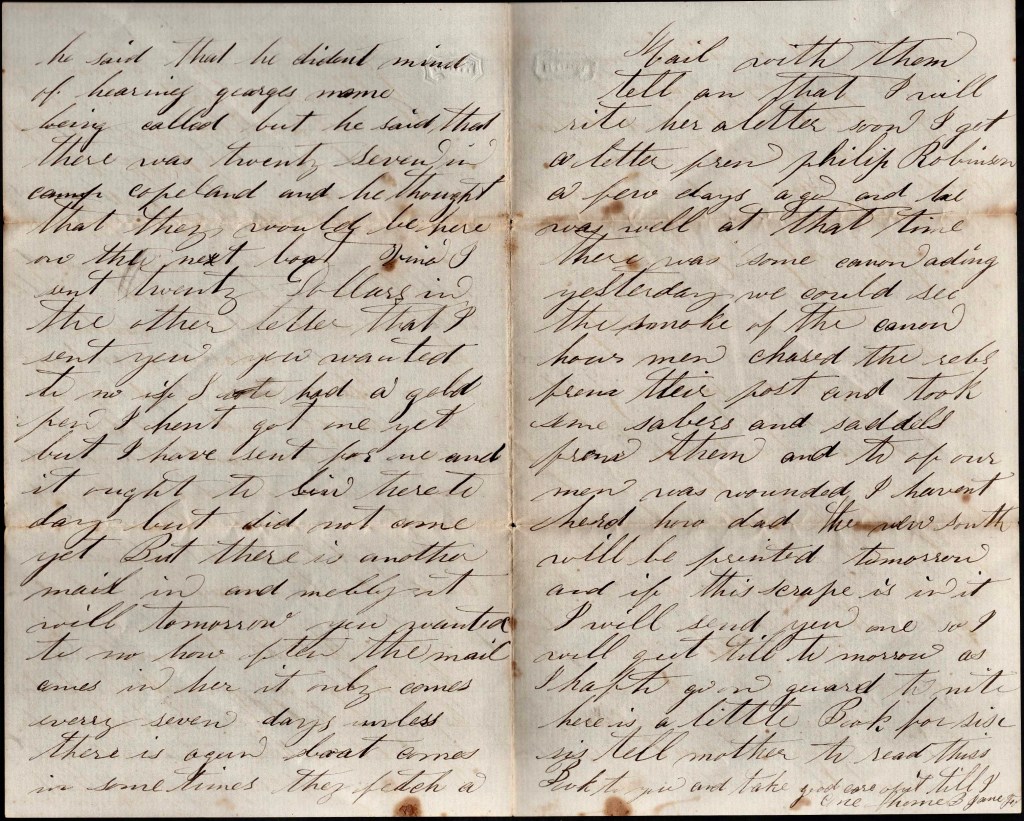 he said that he dident mind
of hearing georges mame
being called but he said that
there was twenty seven in
camp copeland and he thought
that they would be here
on the next boat I
sent twenty Dollars in
the other letter that I
sent you you wanted
to no if I had a gold
pen I hent got one yet
but I have sent for one and
it ought to bin here to
day but did not come
yet But there is another
mail in and mebby it
will tomorrow you wanted
to no how often the mail
comes in her it only comes
everry seven days unless
there is a gun boat comes
in sometimes they fetch a
Mail with them
tell an that I will
rite her a letter soon I got
a letter from philip Robinson
a few days ago and he
was well at that time
there was some canon ading
yesterday we could see
the smoke of the canon
hour men chased the rebs
from their post and took
some sabers and saddels
from them and to of our
men was wounded I havent
herd how bad the new south
will be printed tomorrow
and if this scrape is in it
I will send you one so I
will quit till to morrow as
I hafto go on guard to nite
here is a little Book for sise
sis tell mother to read this
Book to you and take good care of it till I
Come home